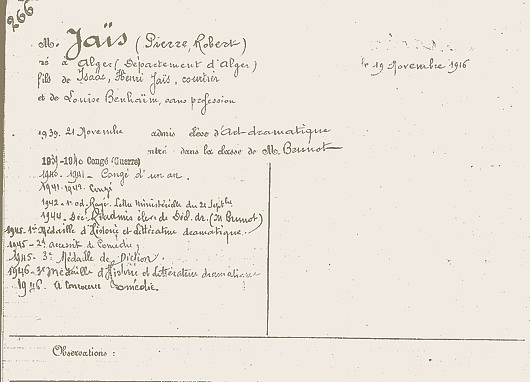 266
M. Jaïs (Pierre, Robert)
né à Alger (Département d'Alger) le 19 Novembre 1916
fils de Isaac, Henri Jaïs, courtier
et de Louise Benhaïm, sans profession
1939. 21 Novembre admis élève d'Art dramatique
entré dans la classe de M. Brunot
1939-1940 Congé (Guerre)
1940-1941 - Congé d'un an.
1941-1942. Congé
1942 - Lettre Ministérielle du 21 Sept
1944 Déc. Réadmis élève de Décl. dr. (M. Brunot)
1945. 1re Médaille d'Histoire et Littérature dramatique.
1945 - 2d accessit de Comédie
1945 - 3e Médaille de Diction
1946 - 3e Médaille d'Histoire et Littérature dramatique
1946. A concouru Comédie.
Observations :